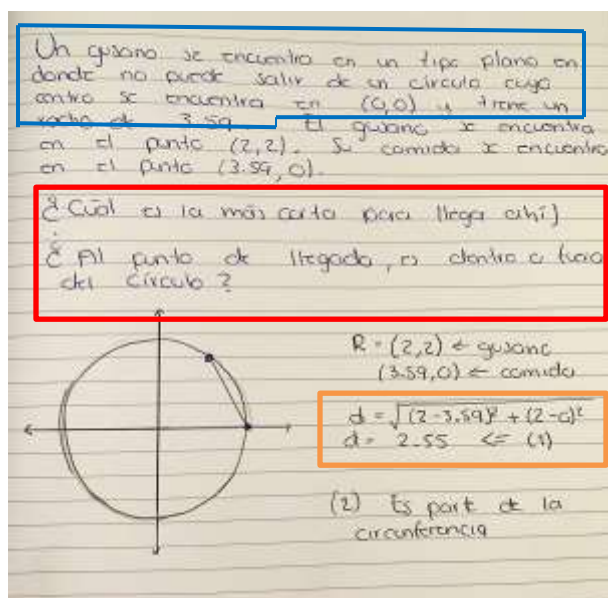 Un gusano se encuentra en un tipo plano en
donde no puede salir de un círculo cuyo
centro se encuentra en (0,0) y tiene un
radio de 3.59. El gusano se encuentra
en el punto (2,2). Su comida se encuentra
en el punto (3.59, 0).
¿Cuál es la más corta para llega ahí?
¿Al punto de llegada, es dentro o fuera
del círculo?
R = (2,2) ← gusano
(3.59,0) ← comida
d = √(2-3.59)² + (2-0)²
d = 2.55 <= (1)
(2) Es part de la
circunferencia